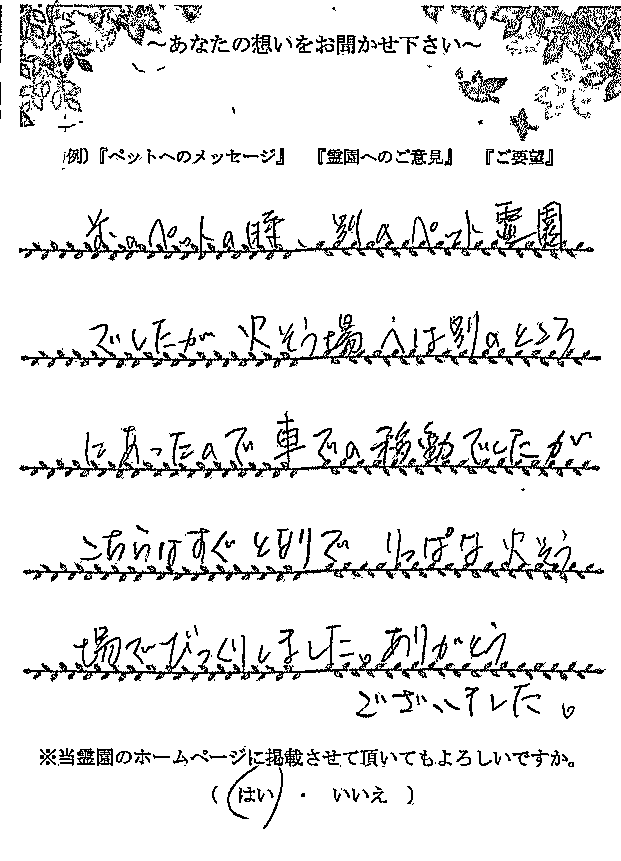 ～あなたの想いをお聞かせ下さい～
例)『ペットへのメッセージ』 『霊園へのご意見』 『ご要望』
のペットの時、別のペット霊園
でしたが 火そう場へは別のところ
にあったので車での移動でしたが
こちらはすぐとなりで りっぱな火そう
場でびっくりしました。ありがとう
ございました。
※当霊園のホームページに掲載させて頂いてもよろしいですか。
( はい ・ いいえ )